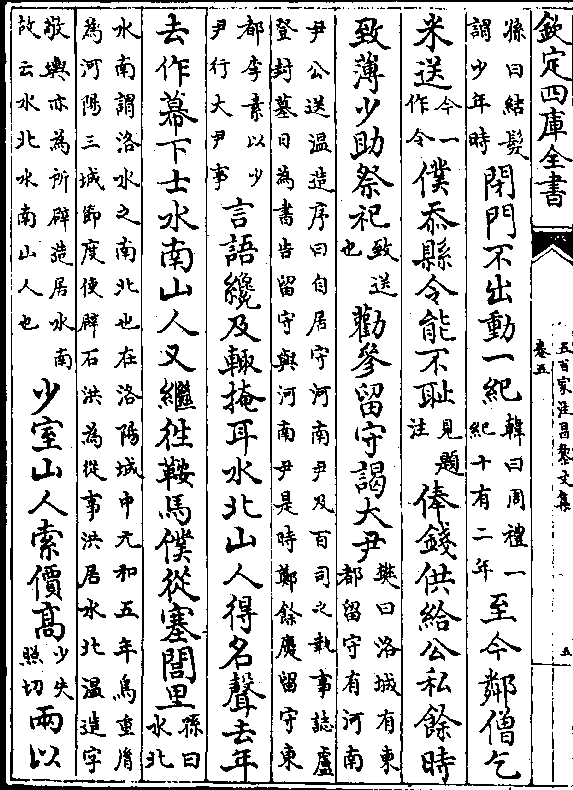 欽定四庫全書
五百家注昌黎文集
卷五
五
孫曰結髮
謂少年時
閉門不出動一紀
韓曰周禮一
紀十有二年
至今鄰僧乞
米送
今一
作令
僕忝縣令能不耻
見題
注
俸錢供給公私餘時
致薄少助祭祀
致送
也
勸參留守謁大尹
樊曰洛城有東
都留守有河南
尹公送温造序曰自居守河南尹及百司之執事誌盧
登封墓曰為書告留守與河南尹是時鄭餘慶留守東
都李素以少
尹行大尹事
言語纔及輒掩耳水北山人得名聲去年
去作幕下士水南山人又繼徃鞍馬僕從塞閭里
孫曰
水北
水南謂洛水之南北也在洛陽城中元和五年烏重𦙍
為河陽三城節度使辟石洪為從事洪居水北温造字
敬輿亦為所辟造居水南
故云水北水南山人也
少室山人索價高
少失
照切
兩以